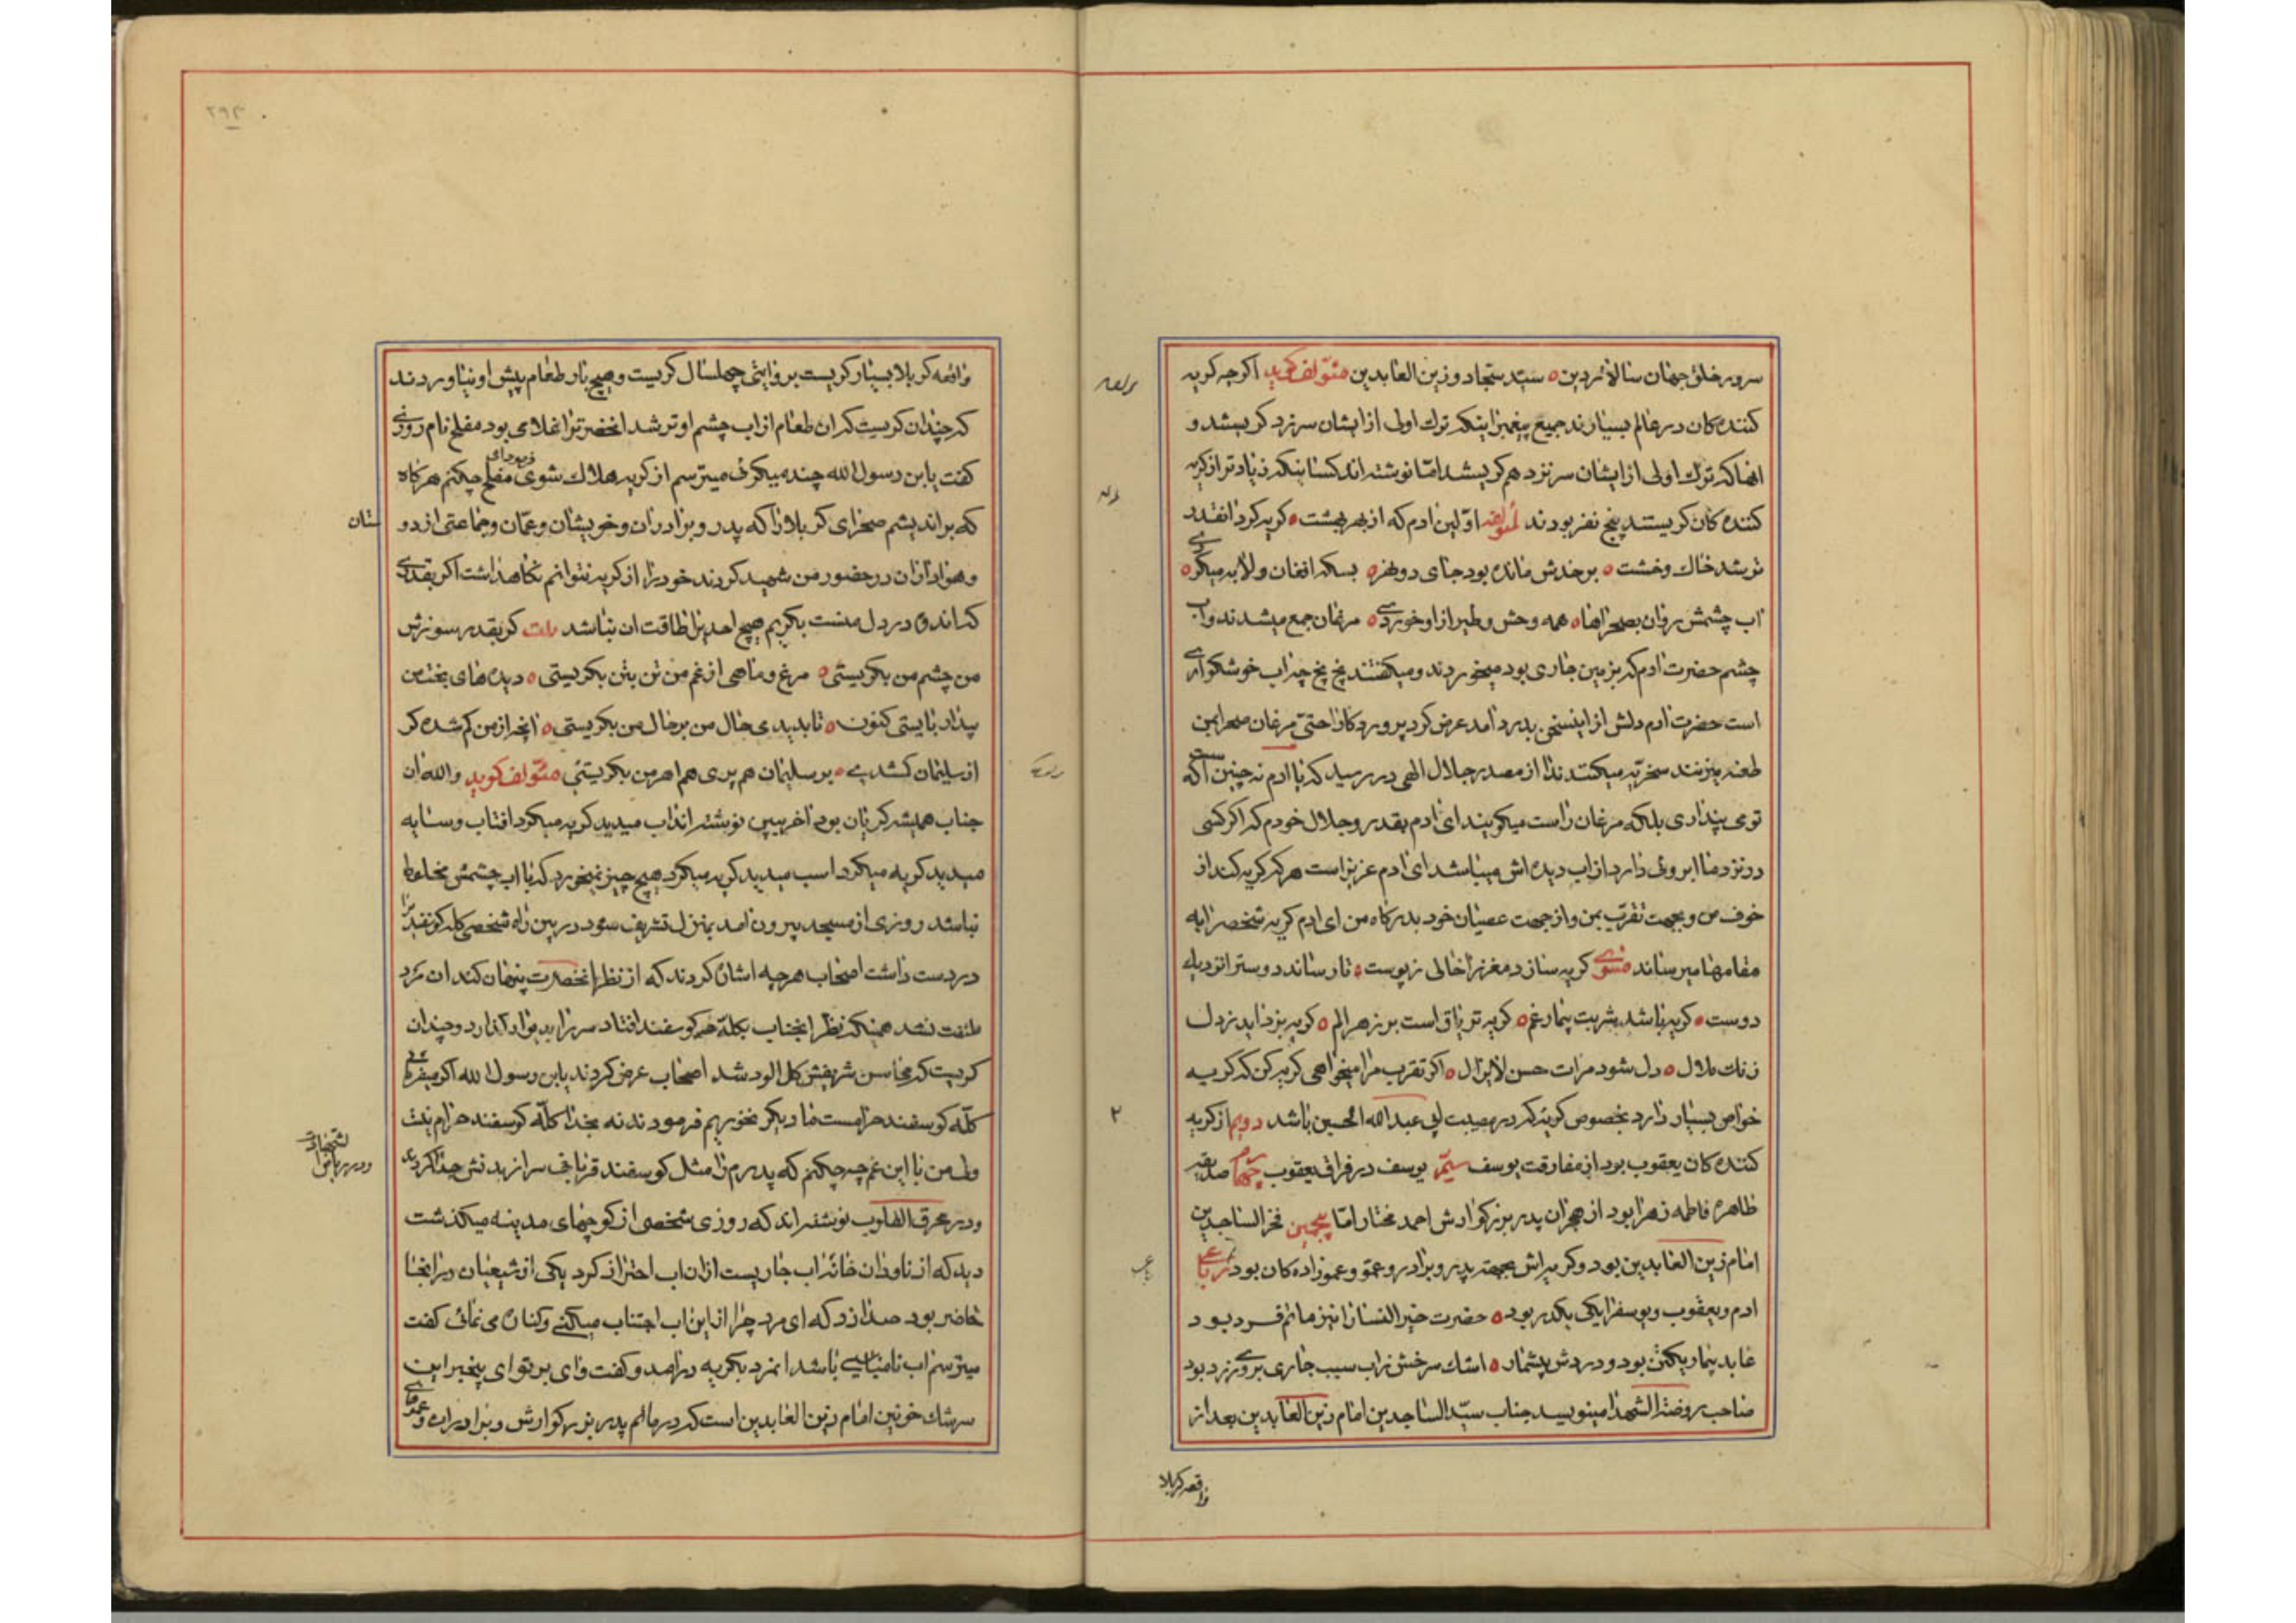 سرور خلق جهان سالار دین ه سید سجاد و زین العابدین مؤلف گوید اکر چه کریه
کننده کان در عالم بسیارند جمیع پیغمبرانیکه ترك اولی از ایشان سر زد کریستند و
انها که ترك اولی از ایشان سر نزد هم کریستند اما نوشته اند کسانیکه زیادتر از کریه
کننده کان کریستند پنج نفر بودند لمؤلفه اولین ادم که از بهر بهشت ه کریه کرد انقدر
تر شد خاك و خشت ه بر خدش مانده بود جای دو نهر ه بسکه افغان و لابه میکرد ه
اب چشمش روان بصحراها ه همه وحش و طیر از او خوردی ه مرغان جمع میشدند و اب
چشم حضرت ادم که بزمین جاری بود میخوردند و میکفتند بخ بخ چه اب خوشکواری
است حضرت ادم دلش از اینسخن بدرد امد عرض کرد پروردکارا حتی مرغان صحرا بمن
طعنه میزنند سخریه میکنند ندا از مصدر جلال الهی در رسید که یا ادم نه چنین است که
توی پنداری بلکه مرغان راست میکویند ای ادم بقدر و جلال خودم که اکر کسی
در نزد ما ابروئی دارد از اب دیده اش میباشد ای ادم عزیز است هر که کریه کند از
خوف من و بجهت تقرب بمن و از جهت عصیان خود بدرکاه من ای ادم کریه شخص را به
مقامها میرساند مثنوی کریه سازد مغز را خالی ز پوست ه تا رساند دوست را نزدیك
دوست ه کریه باشد شربت بیمار غم ه کریه تریاق است بر زهر الم ه کریه بزداید ز دل
زنك ملال ه دل شود مرات حسن لایزال ه اکر تقرب مرا میخواهی کریه کن که کریه
خواص بسیار دارد بخصوص کریه که در مصیبت ابی عبد الله الحسین باشد دویم از کریه
کننده کان یعقوب بود از مفارقت یوسف سیم یوسف در فراق یعقوب چهارم صدیقه
طاهره فاطمه زهرا بود از هجران پدر بزرکوارش احمد مختار اما پنجمین فخر الساجدین
امام زین العابدین بود و کریه اش بجهت پدر و برادر و عمو و عمو زاده کان بود رباعی
ادم و یعقوب و یوسف را یکی یکدر بود ه حضرت خیر النسا را نیز ماتم فرد بود
عابد بیمار یکتن بود و دردش بیشمار ه اشك سرخش زاب سیب جاری بروی زرد بود
صاحب روضة الشهدا مینویسد جناب سید الساجدین امام زین العابدین بعد از
واقعه کربلا
۲۹۴
واقعه کربلا بسیار کریست بروایتی چهلسال کریست و هیچ بار طعام پیش او نیاوردند
که چندان کریست که ان طعام از اب چشم او تر شد انحضرترا غلامی بود مفلح نام روزی
کفت یابن رسول الله چند میکری میترسم از کریه هلاك شوی فرمود ای مفلح چکنم هر کاه
که براندیشم صحرای کربلا را که پدر و برادران و خویشان و عمان و جماعتی از دو
ستان
و هواداران در حضور من شهید کردند خود را از کریه نتوانم نکاهداشت اکر بقدری
که اندوه در دل منست بکریم هیچ احدیرا طاقت ان نباشد بیت کر بقدر سوزش
من چشم من بکریستی ه مرغ و ماهی از غم من تن بتن بکریستی ه دیده های بخت من
بیدار بایستی کنون ه تا بدیدی حال من بر حال من بکریستی ه انچه از من کم شده کر
از سلیمان کشدی ه بر سلیمان هم پری هم اهرمن بکریستی مؤلف کوید والله ان
جناب همیشه کریان بود اخر ببین نوشته اند اب میدید کریه میکرد افتاب و سایه
میدید کریه میکرد اسب میدید کریه میکرد هیچ چیز نمیخورد که با اب چشمش مخلوط
نباشد روزی از مسجد بیرون امد بمنزل تشریف میبرد در بین راه شخصی کله کوسفندیرا
در دست داشت اصحاب هر چه اشاره کردند که از نظر انحضرت پنهان کند ان مرد
ملتفت نشد همینکه نظر انجناب بکله کوسفند افتاد سر را بدیوار کذارد و چندان
کریست که محاسن شریفش کل الود شد اصحاب عرض کردند یابن رسول الله اکر میفرمائی
کله کوسفند حرامست ما دیکر نخوریم فرمودند نه بخدا کله کوسفند حرام نیست
ولی من با این غم چه چکنم که پدرم را مثل کوسفند قربانی سر از بدنش جدا کردند
و در محرق القلوب نوشته اند که روزی شخصی از کوچهای مدینه میکذشت
دید که از ناودان خانه اب جاریست از ان اب احتراز کرد یکی از شیعیان در انجا
حاضر بود صدا زد که ای مرد چرا از این اب اجتناب میکنی و کناره می نمائی کفت
میترسم اب نامناسبی باشد انمرد بکریه درامد و کفت وای بر تو ای بیخبر این
سرشك خونین امام زین العابدین است که در ماتم پدر بزرکوارش و برادران و عموهای